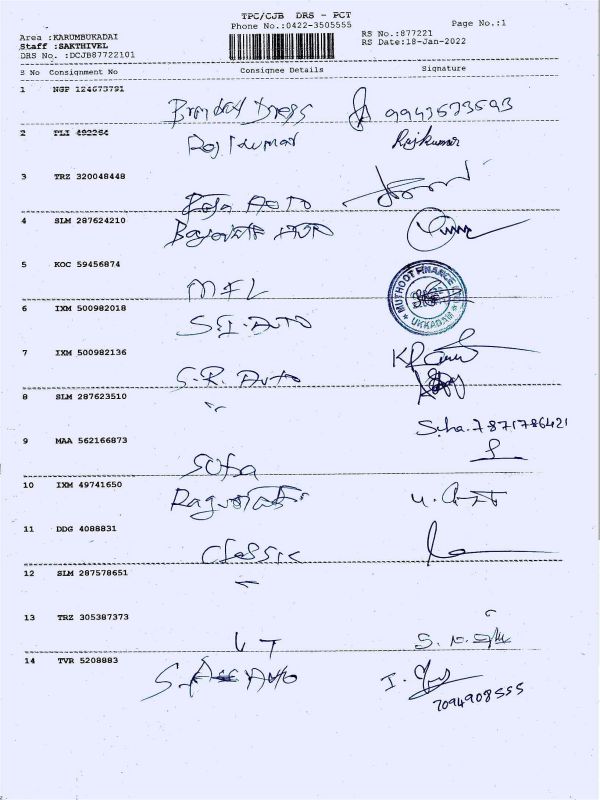 TPC/CJB DRS - PCT
Phone No.:0422-3505555
Page No.:1
Area :KARUMBUKADAI
Staff :SAKTHIVEL
DRS No. :DCJB87722101
RS No.:877221
RS Date:18-Jan-2022
S No Consignment No Consignee Details Signature
1 NGP 124673791
9943573593
2 PLI 492264
Raj Kumar Rajkumar
3 TRZ 320048448
Roja AUTO
4 SLM 287624210
AUTO
5 KOC 59456874
MFL
MUTHOOT FINANCE
UKKADAM
6 IXM 500982018
S.I. AUTO
7 IXM 500982136
S.R. Auto
8 SLM 287623510
"
Suha. 7871786421
9 MAA 562166873
Sofa
10 IXM 49741650
11 DDG 4088831
Classic
12 SLM 287578651
13 TRZ 305387373
VT
14 TVR 5208883
Auto
7094908555